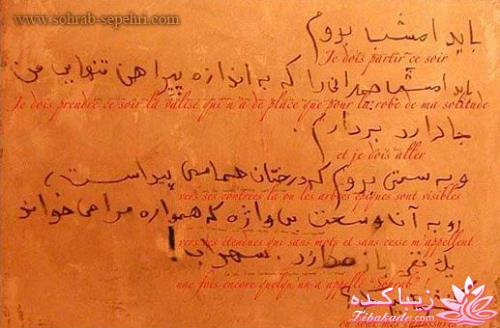 www.sohrab-sepehri.com
باید امشب بروم
Je dois partir ce soir
باید امشب چمدانی را که به اندازه پیراهن تنهایی من
Je dois prendre ce soir la valise qui n'a de place que pour la robe de ma solitude
جا دارد بردارم.
et je dois aller
و به سمتی بروم که درختان حماسی پیداست،
vers ses contrées là où les arbres épiques sont visibles
رو به آن وسعت بی واژه که همواره مرا می خواند
vers des étendues qui sans mots et sans cesse m'appellent
یک نفر باز صدا زد. سهراب!
une fois encore quelqu'un a appelé "Sohrab"
زیباکده
Zibakade.com